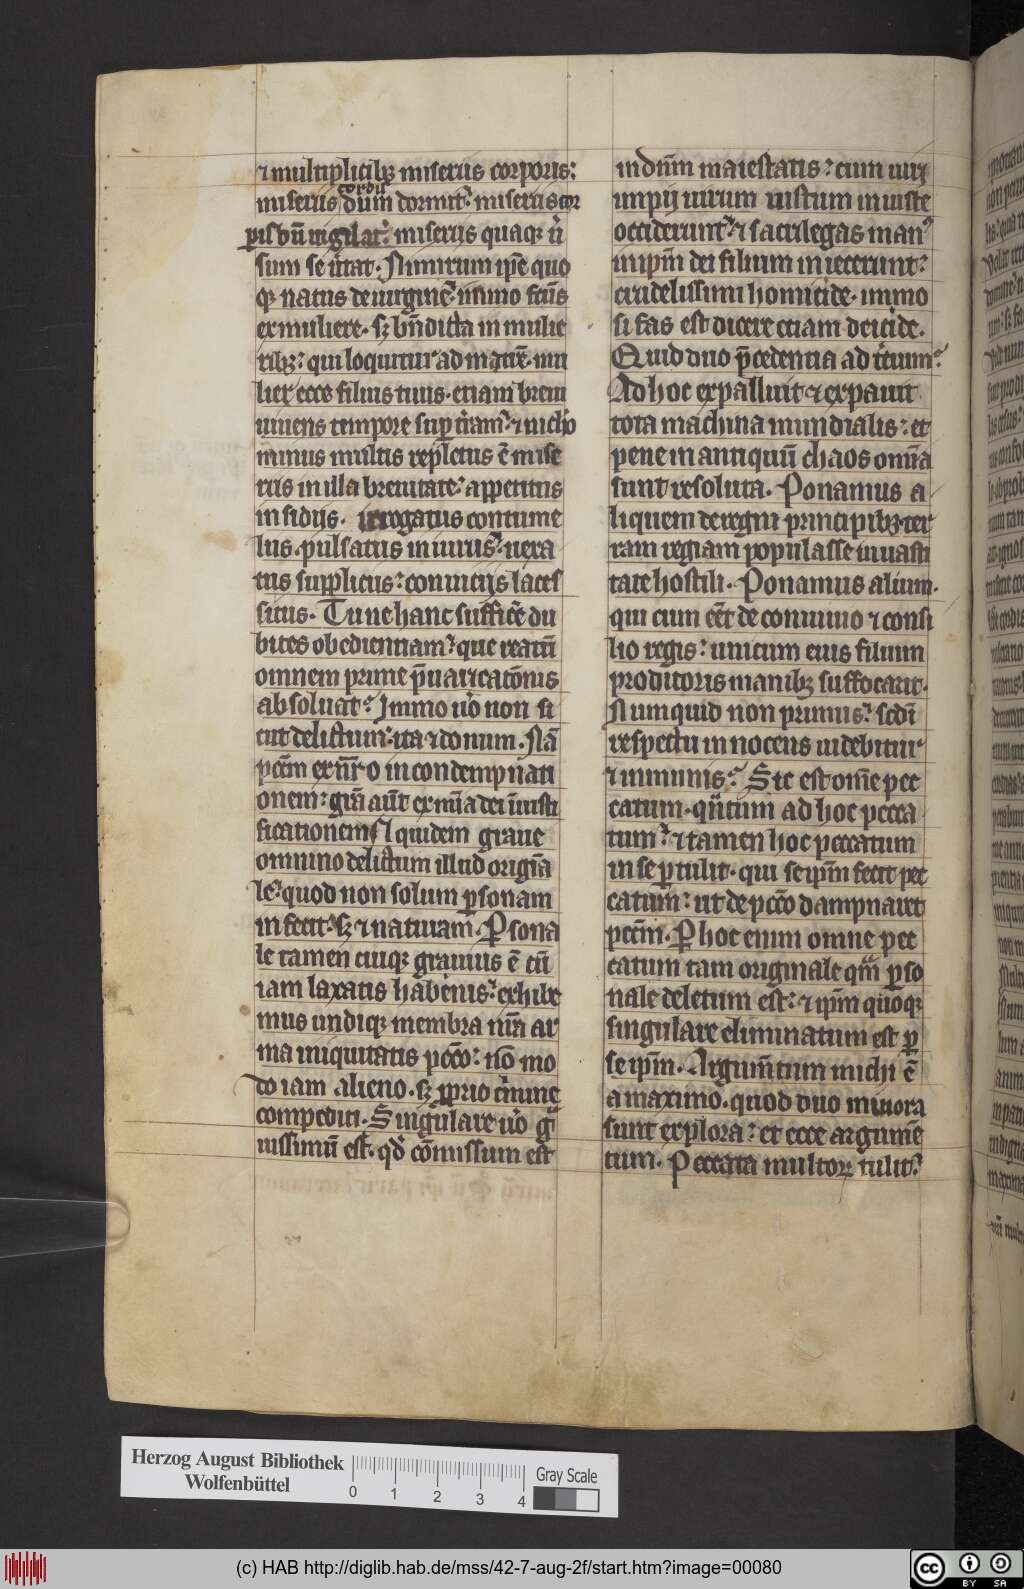 ⁊ multiplicibꝫ miseriis corporis:
cordis
miseriis dum dormit: miseriis cor
pis dū uigilat: miseriis quaqꝫ ů
sum se ů̃tat. Nimirum ip̃e quo
qꝫ natus de uirgine: ī̃mo fc̃us
ex muliere. sꝫ bñdicta in mulie
ribꝫ: qui loquitur ad matrē. mu
lier ecce filius tuus. etiam breui
uiuens tempore sup̱ t̃ram: ⁊ nichoͥ
minus multis repletus ē mise
riis in illa breuitate: appetitus
insidiis. irrogatus contume
liis. pulsatus iniuriis: uexa
tus suppliciis: conuiciis laces
situs. Tu ne hanc sufficẽ du
bites obedientiam: que reatū
omnem prime p̃uaricatõnis
absoluat: Immo ůo non si
cut delictum: ita ⁊ donum. Nā
pcc̃m ex ur̃o in condempnati
onem: grã aut̃ ex mĩa dei ĩ iusti
ficationem. Et quidem graue
omnino delictum illud originā
le: quod non solum p̱sonam
infecit: sꝫ ⁊ naturam. P̱sona
le tamen cuiqꝫ grauius ē cū
iam laxatis habenis: exhibe
mus undiqꝫ membra nr̃a ar
ma iniquitatis pcc̃o: nõ mo
do iam alieno. sꝫ p̱prio c̃mine
compediti. Singulare ůo gͣ
uissimū est. qd̃ cõmissum est
in dñm maiestatis: cum uiri
impii uirum iustum iniuste
occiderunt: ⁊ sacrilegas manꝰ
in ip̃m dei filium iniecerunt:
crudelissimi homicide. immo
si fas est dicere etiam deicide.
Quid duo p̃cedentia ad t̃cium:
Ad hoc expalluit ⁊ expauit
tota machina mundialis: et
pene in antiquū chaos omĩa
sunt resoluta. Ponamus a
liquem de regni principibꝫ ter
ram regiam populasse in uasti
tate hostili. Ponamus alium.
qui cum eēt de conuiuio ⁊ consi
lio regis: unicum eius filium
proditoris manibꝫ suffocarit.
Numquid non primus: scd̃i
respectu innocens uidebitur
⁊ inmunis: Sic est om̃e pec
catum. qͣntum ad hoc pecca
tum: ⁊ tamen hoc peccatum
in se p̱tulit. qui se ip̃m fecit pec
catum: ut de pcc̃o dampnaret
pcc̃m. P̱ hoc enim omne pec
catum tam originale qͣm p̱so
nale deletum est: ⁊ ip̃m quoqꝫ
singulare eliminatum est p̱
se ip̃m. Argum̃tum michi ē
a maximo. quod duo minora
sunt explosa: et ecce argumē
tum. Peccata multoꝝ tulit:
Herzog August Bibliothek
Wolfenbüttel
0 1 2 3 4
Gray Scale
(c) HAB http://diglib.hab.de/mss/42-7-aug-2f/start.htm?image=00080
cc BY SA